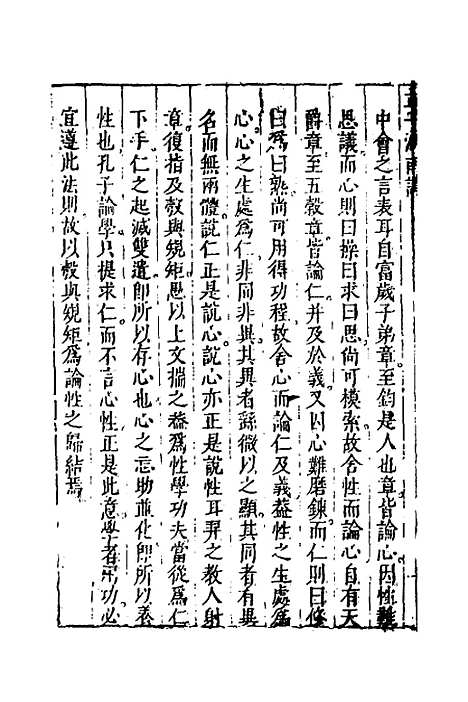 中會之言表耳自富歲子弟章至鈞是人也章皆論心因性難
思議而心則曰操曰求曰思尚可模索故舍性而論心自有天
爵章至五穀章皆論仁并及於義又因心難磨鍊而仁則曰修
曰爲曰熟尚可用得功程故舍心而論仁及義蓋性之生處爲
心心之生處爲仁非同非異其異者蘇微以之顯其同者有異
名而無兩體說仁正是說心說心亦正是說性耳羿之教人射
章復指及彀與規矩思以上文揣之蓋爲性學功夫當從爲仁
下手仁之起滅雙遣即所以存心也心之忘助並化即所以養
性也孔子論學只提求仁而不言心性正是此意學者用功必
宜遵此法則故以彀與規矩爲論性之歸結焉